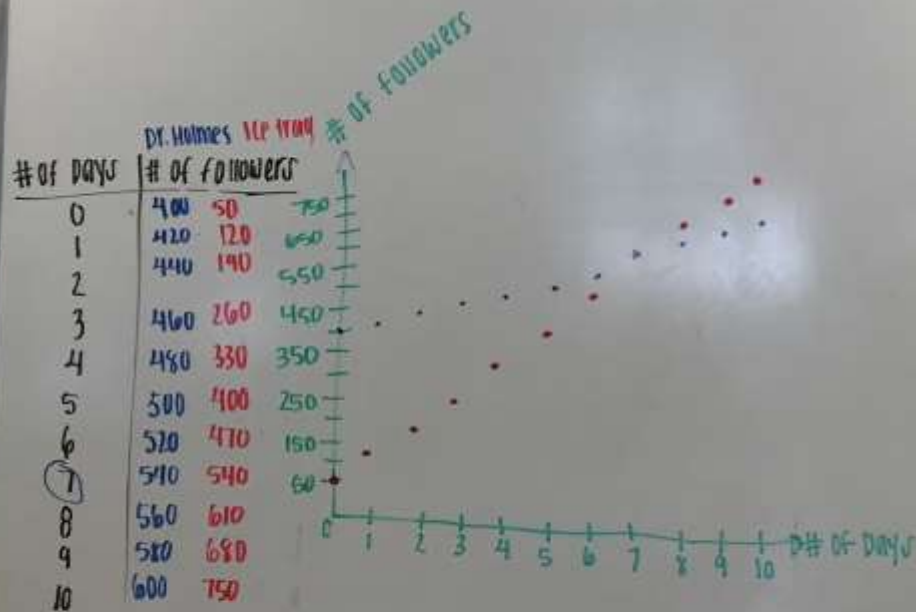 # of Followers
Dr. Holmes ICP Trag
# of Days # of Followers
0 400 50
1 420 120
2 440 190
3 460 260
4 480 330
5 500 400
6 520 470
7 540 540
8 560 610
9 580 680
10 600 750
750
650
550
450
350
250
150
50
0 1 2 3 4 5 6 7 8 9 10 # of Days